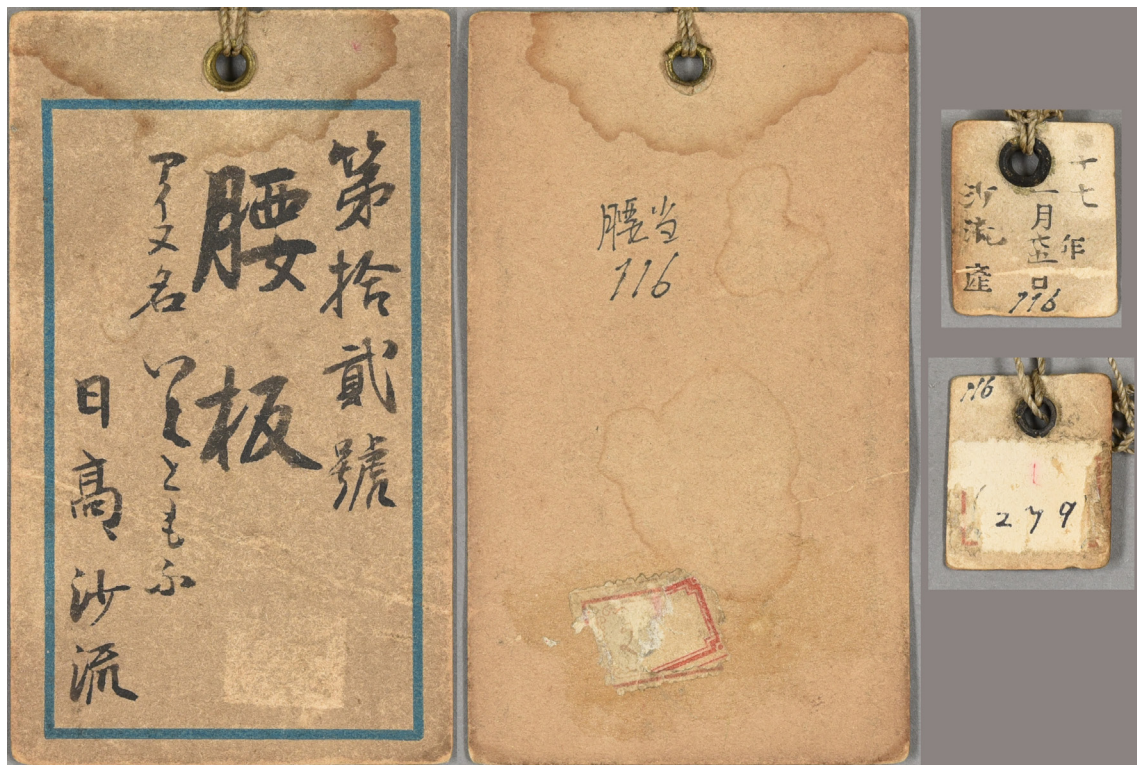 第拾貳號
腰板
アイヌ名
日高沙流
腰当
116
十七年
一月
沙流産
116
116
279